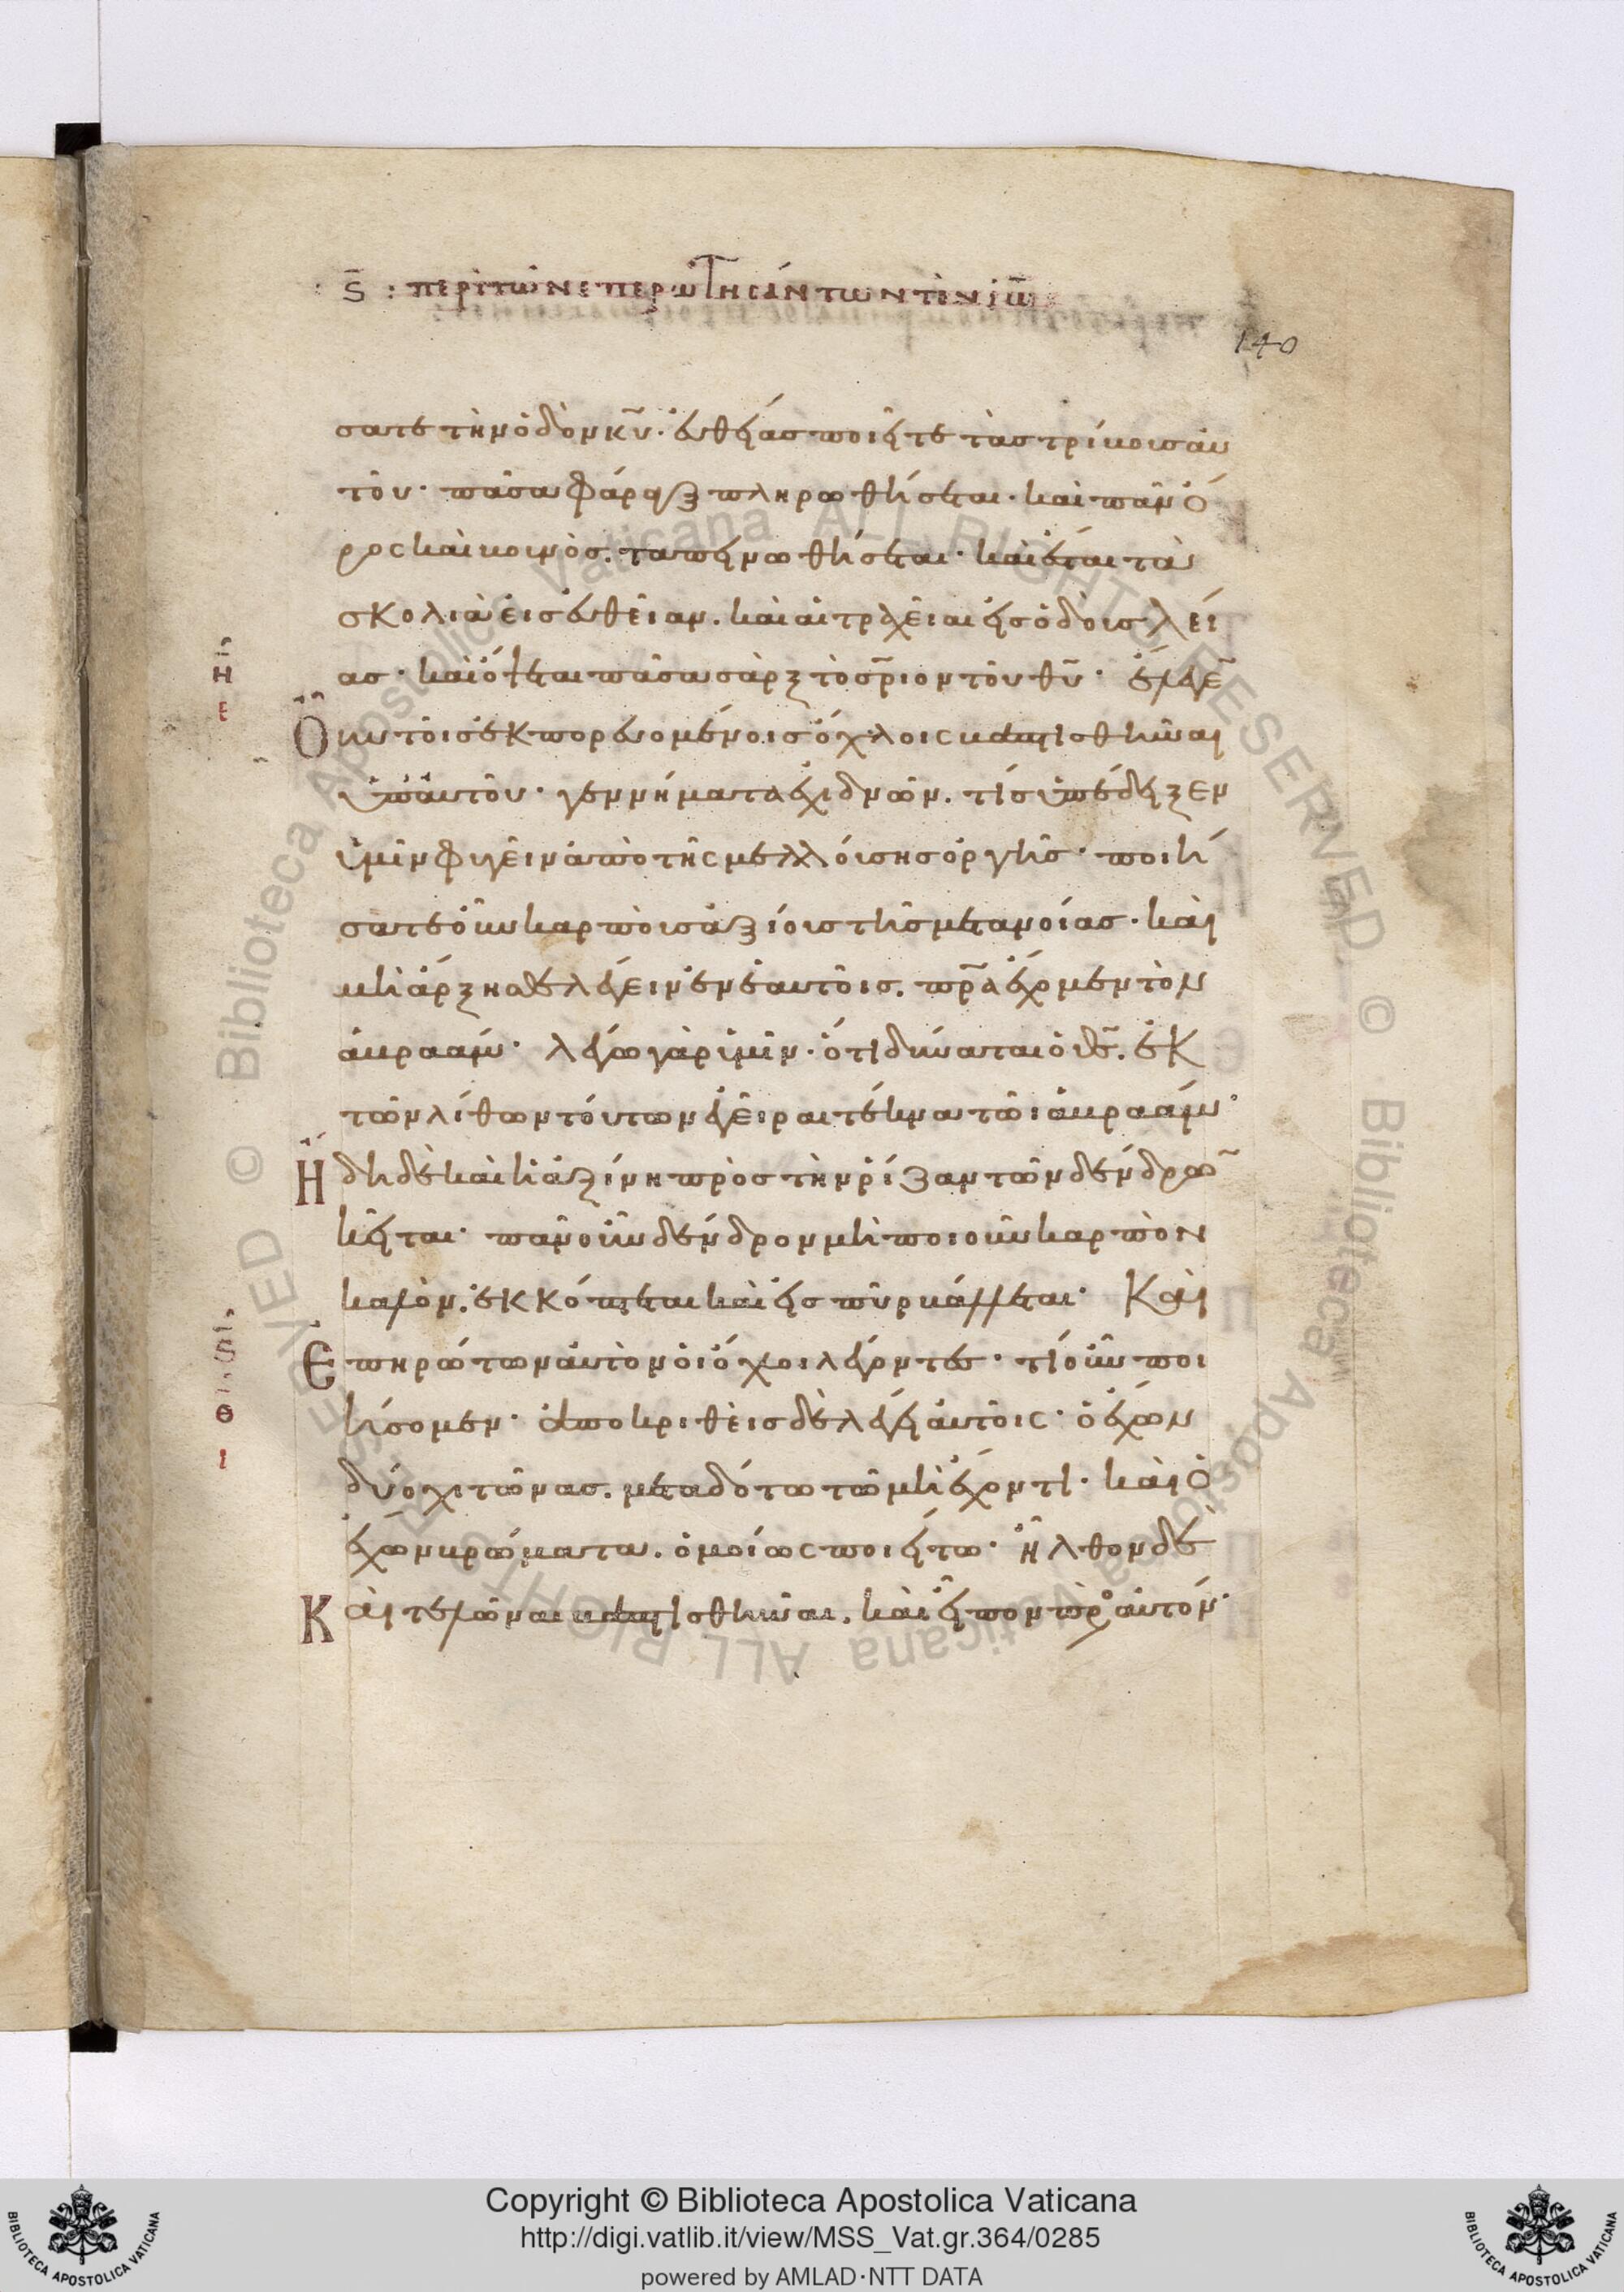 ς : περὶ τῶν ἐπερωτησάντων τὸν ἰω
140
σατε τὴν ὁδὸν κυ· εὐθείας ποιεῖτε τὰς τρίβους αὐ
τοῦ· πᾶσα φάραγξ πληρωθήσεται· καὶ πᾶν ὄ
ρος καὶ βουνὸς. ταπεινωθήσεται· καὶ ἔσται τὰ
σκολιὰ εἰς εὐθεῖαν. καὶ αἱ τραχεῖαι εἰς ὁδοὺς λεί
ας· καὶ ὄψεται πᾶσα σὰρξ τὸ σριον τοῦ θυ· ἔλεγε
η
ε
Ὀ υν τοῖς ἐκπορευομένοις ὄχλοις βαπτισθῆναι
ὑπ' αὐτοῦ· γεννήματα ἐχιδνῶν. τίς ὑπέδειξεν
ὑμῖν φυγεῖν ἀπὸ τῆς μελλούσης ὀργῆς· ποιή
σατε οὖν καρποὺς ἀξίους τῆς μετανοίας· καὶ
μὴ ἄρξησθε λέγειν ἐν ἑαυτοῖς. πρα ἔχομεν τὸν
ἀβραάμ· λέγω γὰρ ὑμῖν· ὅτι δύναται ὁ θς. ἐκ
τῶν λίθων τούτων ἐγεῖραι τέκνα τῷ ἀβραάμ·
Ἤ δη δὲ καὶ ἡ ἀξίνη πρὸς τὴν ῥίζαν τῶν δένδρω
κεῖται· πᾶν οὖν δένδρον μὴ ποιοῦν καρπὸν
καλὸν. ἐκκόπτεται καὶ εἰς πῦρ βάλλεται· Καὶ
ς
θ
ι
Ἐ πηρώτων αὐτὸν οἱ ὄχλοι λέγοντες· τί οὖν ποι
ήσομεν· ἀποκριθεὶς δὲ λέγει αὐτοῖς· ὁ ἔχων
δύο χιτῶνας. μεταδότω τῶ μὴ ἔχοντι· καὶ ὁ
ἔχων βρώματα. ὁμοίως ποιείτω· ἦλθον δὲ
Κ αὶ τελῶναι βαπτισθῆναι. καὶ εἶπον πρὸς αὐτόν·
Copyright © Biblioteca Apostolica Vaticana
http://digi.vatlib.it/view/MSS_Vat.gr.364/0285
powered by AMLAD·NTT DATA
BIBLIOTECA APOSTOLICA VATICANA
BIBLIOTECA APOSTOLICA VATICANA
© Biblioteca Apostolica Vaticana ALL RIGHTS RESERVED
© Biblioteca Apostolica Vaticana ALL RIGHTS RESERVED